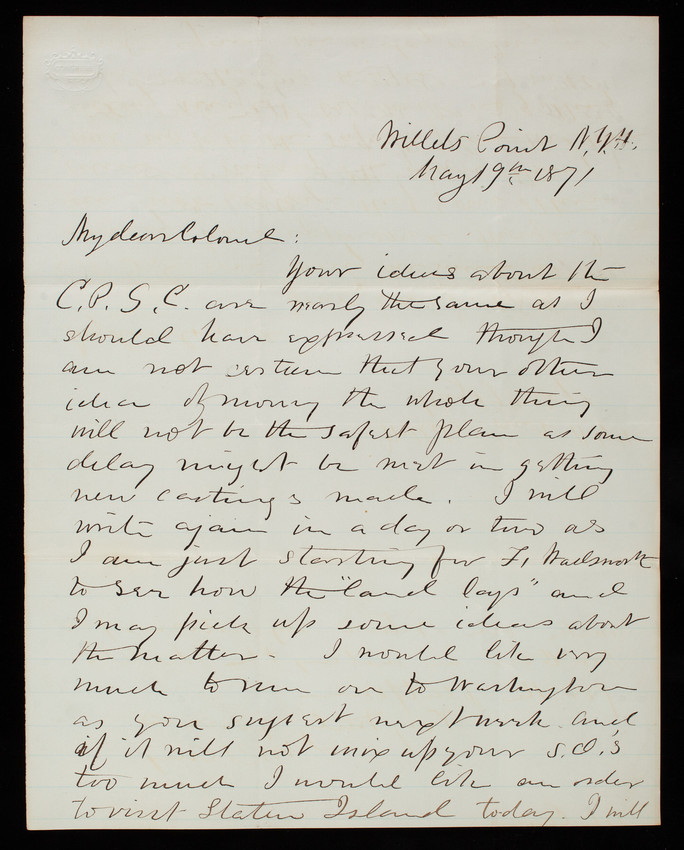 Willets Point N.Y.H.
May 19th 1871
My dear Colonel:
Your ideas about the
C.P.S.C. are nearly the same as I
should have expressed though I
am not certain that your other
idea of moving the whole thing
will not be the safest plan as some
delay might be met in getting
new castings made. I will
write again in a day or two as
I am just starting for Ft Wadsworth
to see how the "land lays" and
I may pick up some ideas about
the matter. I would like very
much to run on to Washington
as you suggest next week and
if it will not mix up your S.O.s
too much I would like an order
to visit Staten Island today. I will